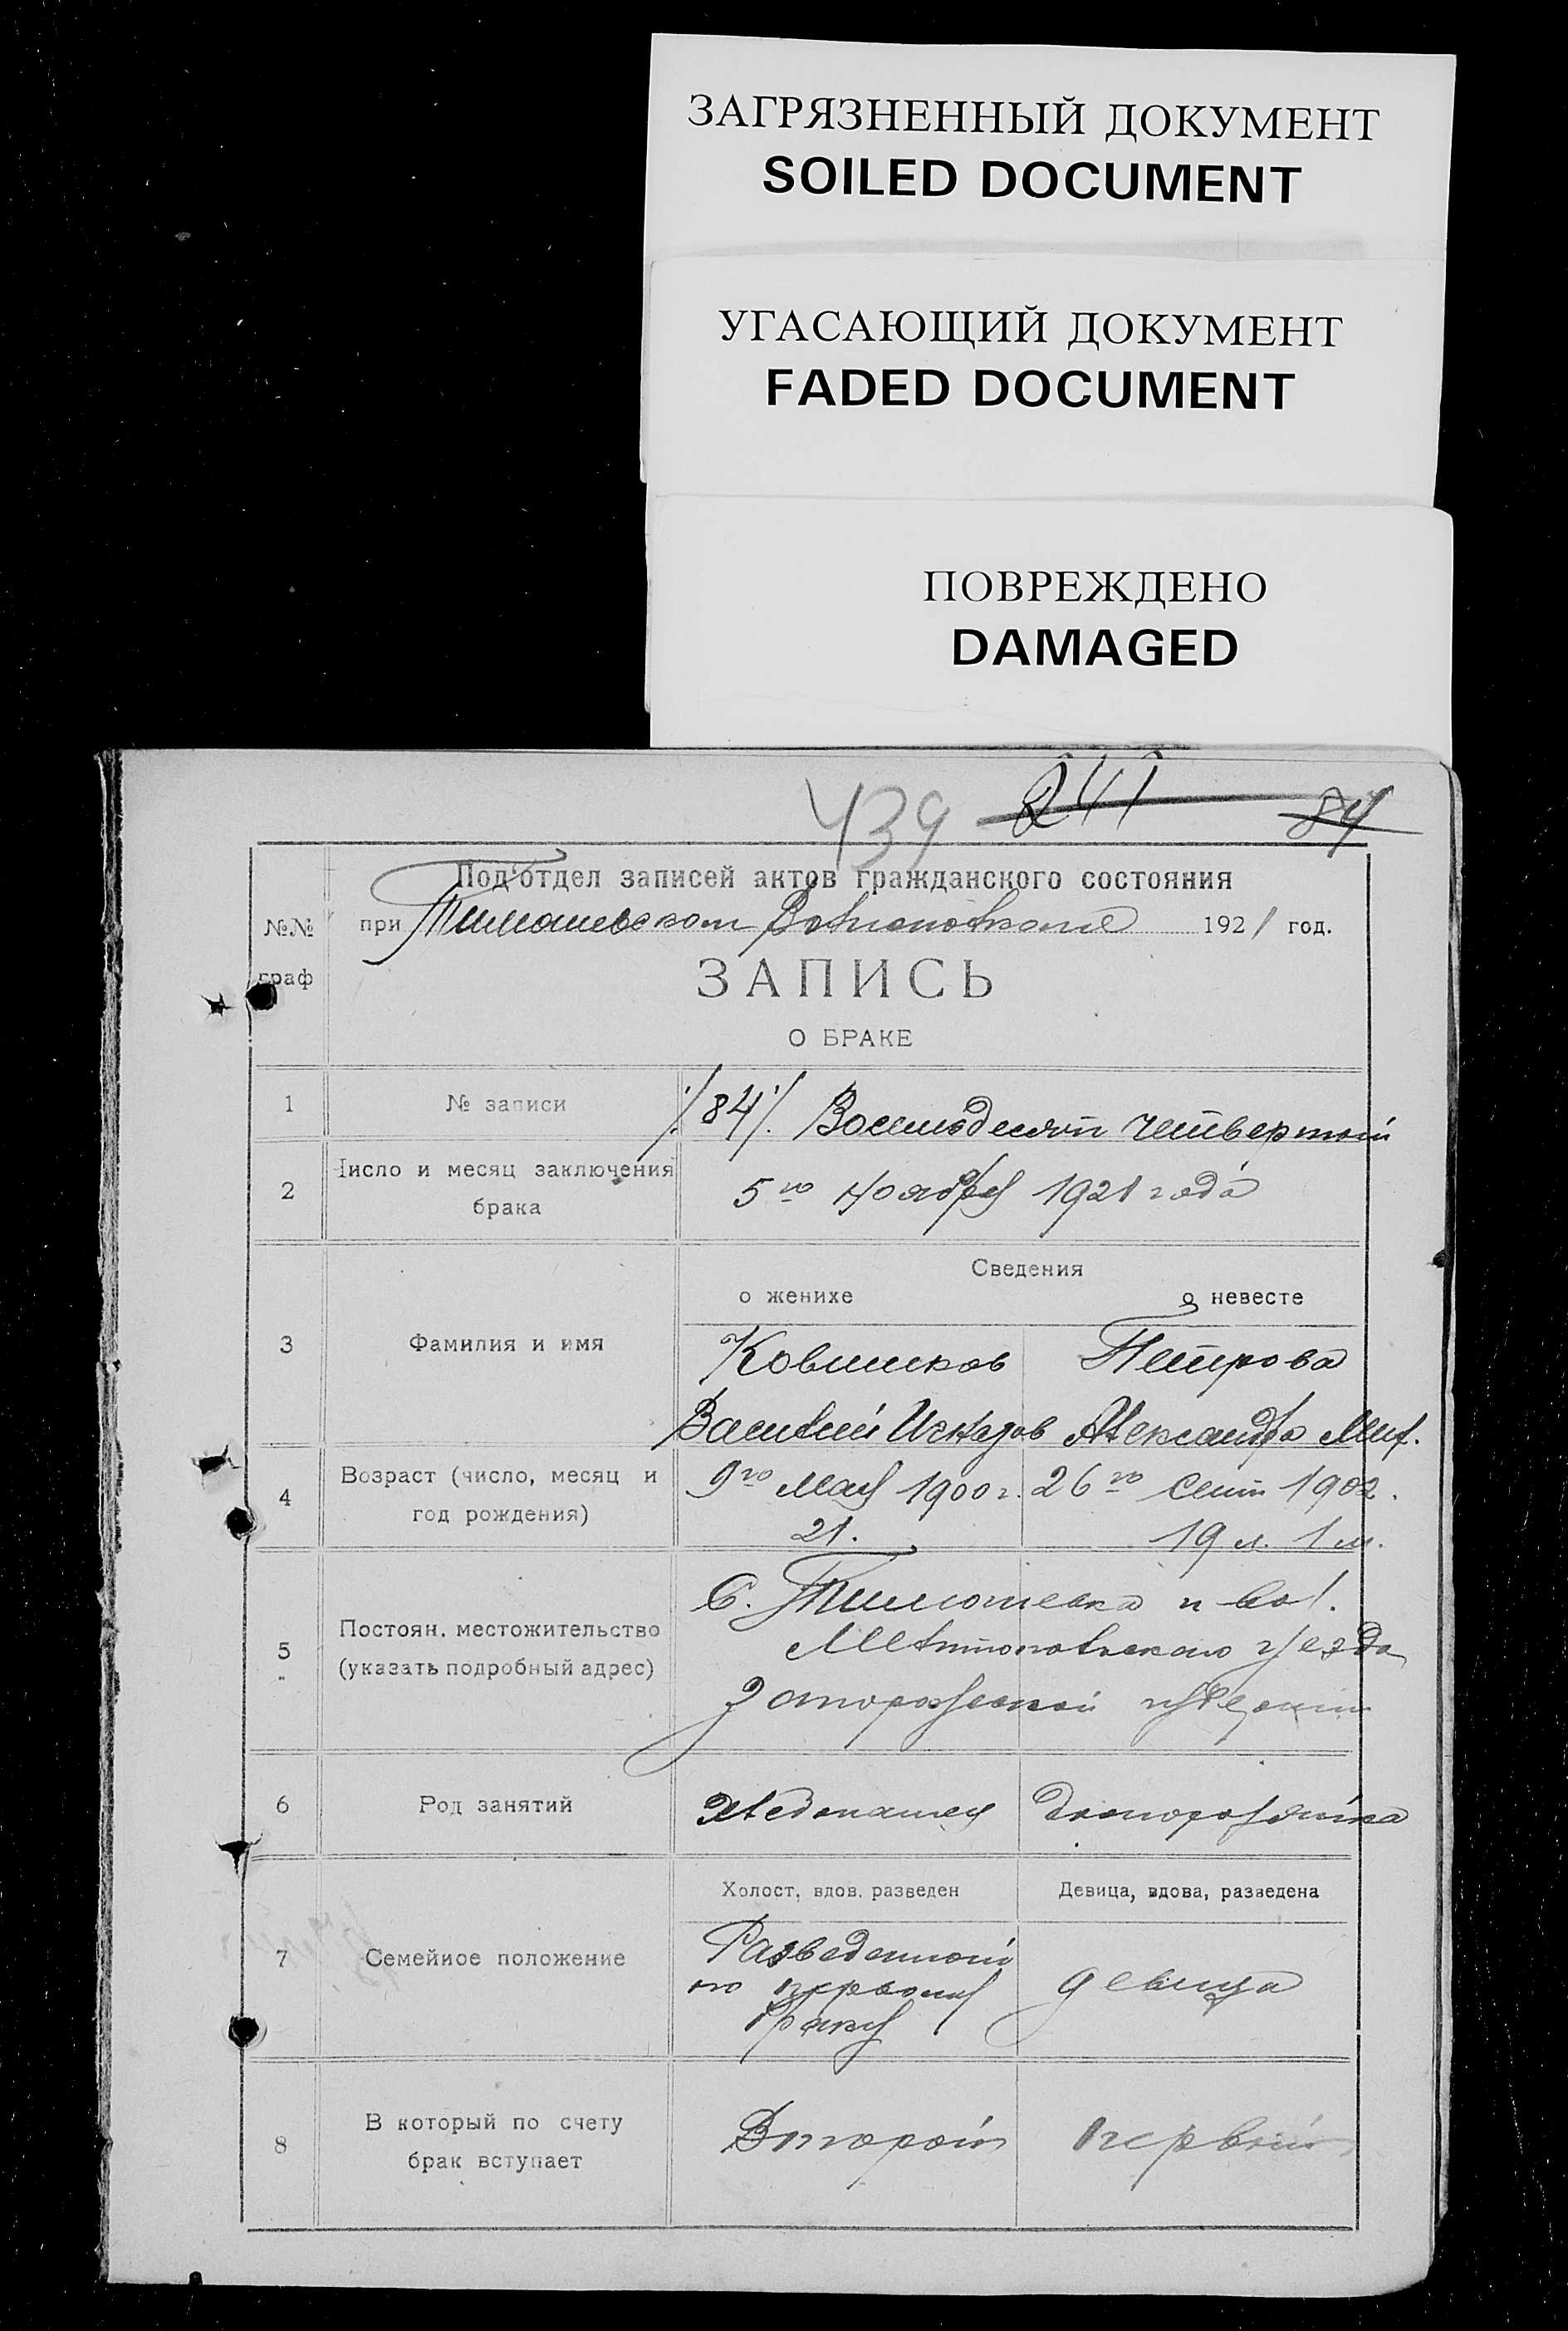 ЗАГРЯЗНЕННЫЙ ДОКУМЕНТ
SOILED DOCUMENT
УГАСАЮЩИЙ ДОКУМЕНТ
FADED DOCUMENT
ПОВРЕЖДЕНО
DAMAGED
439 241 84
Под'отдел записей актов гражданского состояния
№№ граф
при Тимошевском Волисполкоме 1921 год.
ЗАПИСЬ
О БРАКЕ
1 № записи ./84/. Восемьдесят четвертый
2 Число и месяц заключения брака
5го ноября 1921 года
Сведения
о женихе о невесте
3 Фамилия и имя
Ковшиков Петрова
Василий Александра Миф.
4 Возраст (число, месяц и год рождения)
9го мая 1900 г. 26го сент 1902.
21. 19 л. 1 м.
5 Постоян. местожительство (указать подробный адрес)
С. Тимошевка и вол.
Мелитопольского уезда
Запорожской губернии
6 Род занятий
Хлебопашец домохозяйка
Холост, вдов. разведен Девица, вдова, разведена
7 Семейное положение
Разведенный
по первому
браку
девица
8 В который по счету брак вступает
Второй первый